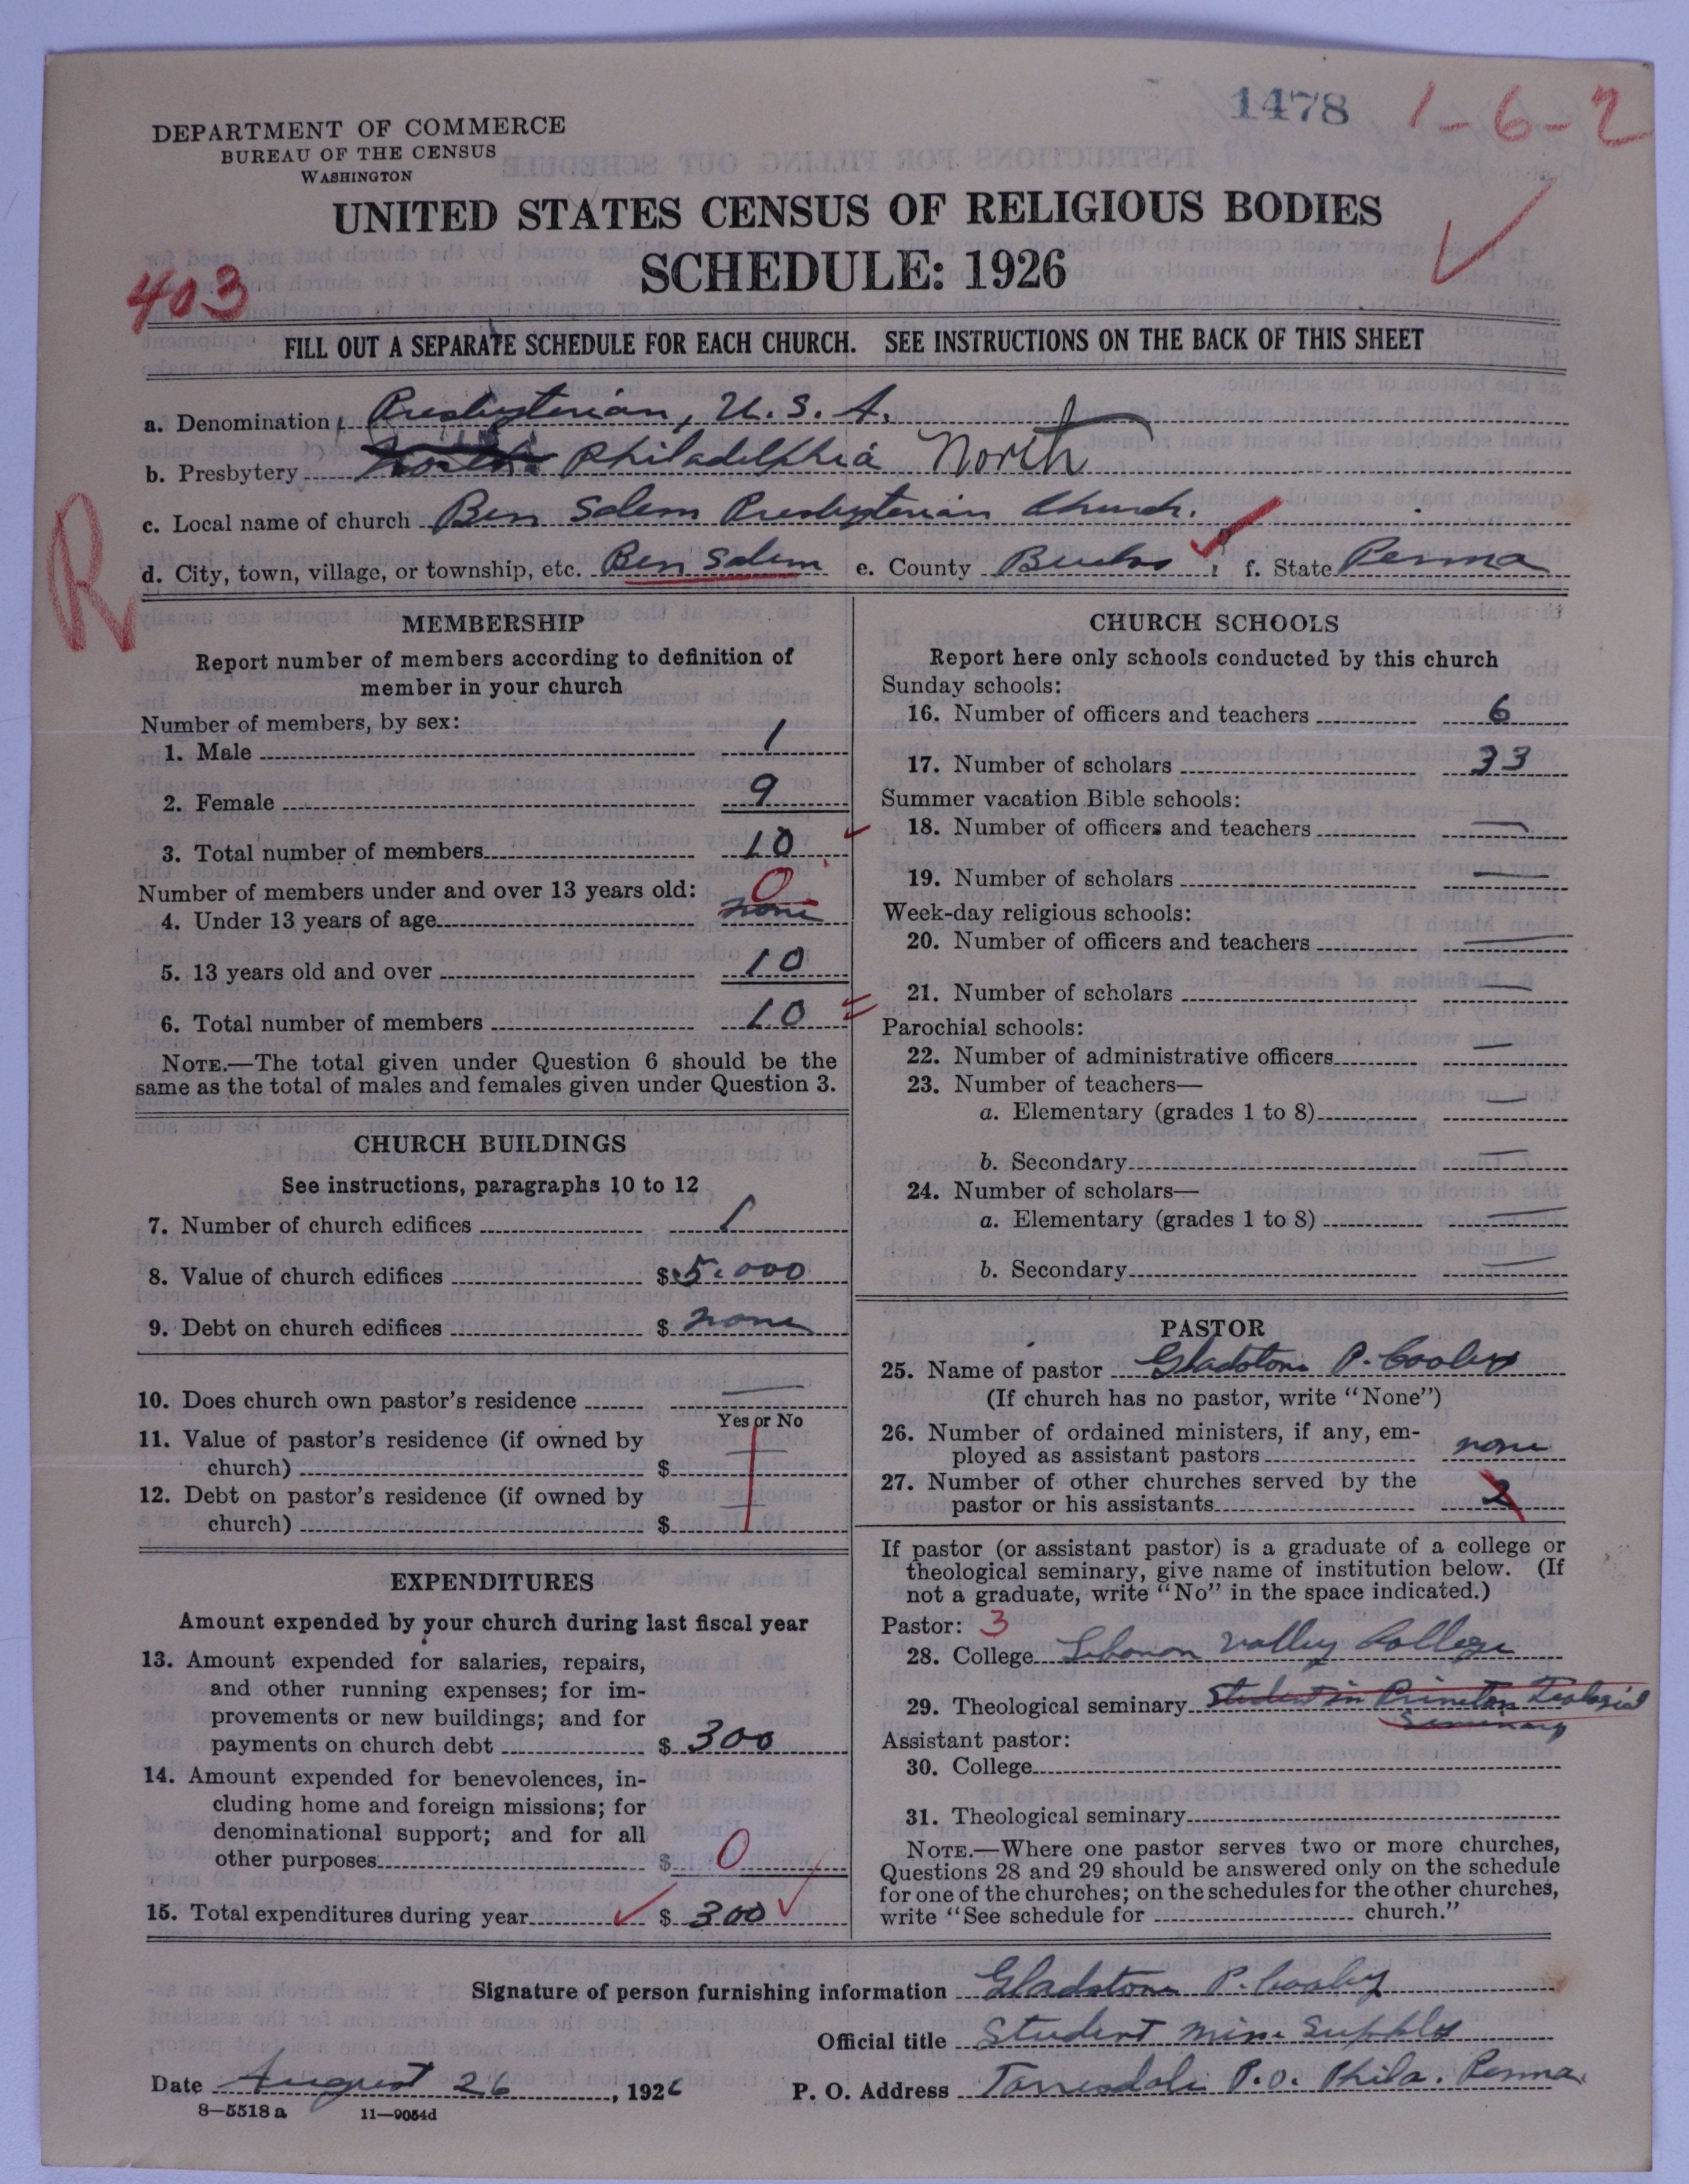 1478 1-6-2
DEPARTMENT OF COMMERCE
BUREAU OF THE CENSUS
WASHINGTON
UNITED STATES CENSUS OF RELIGIOUS BODIES
SCHEDULE: 1926
403
FILL OUT A SEPARATE SCHEDULE FOR EACH CHURCH. SEE INSTRUCTIONS ON THE BACK OF THIS SHEET
a. Denomination Presbyterian, U. S. A.
b. Presbytery Philadelphia North
c. Local name of church Ben Salem Presbyterian Church.
R
d. City, town, village, or township, etc. Ben Salem e. County Bucks f. State Penna
MEMBERSHIP
Report number of members according to definition of
member in your church
Number of members, by sex:
1. Male 1
2. Female 9
3. Total number of members 10
Number of members under and over 13 years old: 0
4. Under 13 years of age none
5. 13 years old and over 10
6. Total number of members 10
NOTE.—The total given under Question 6 should be the
same as the total of males and females given under Question 3.
CHURCH BUILDINGS
See instructions, paragraphs 10 to 12
7. Number of church edifices 1
8. Value of church edifices $ 5,000
9. Debt on church edifices $ none
10. Does church own pastor's residence —
Yes or No
11. Value of pastor's residence (if owned by
church) $ —
12. Debt on pastor's residence (if owned by
church) $ —
EXPENDITURES
Amount expended by your church during last fiscal year
13. Amount expended for salaries, repairs,
and other running expenses; for im-
provements or new buildings; and for
payments on church debt $ 300
14. Amount expended for benevolences, in-
cluding home and foreign missions; for
denominational support; and for all
other purposes $ 0
15. Total expenditures during year $ 300
CHURCH SCHOOLS
Report here only schools conducted by this church
Sunday schools:
16. Number of officers and teachers 6
17. Number of scholars 33
Summer vacation Bible schools:
18. Number of officers and teachers —
19. Number of scholars —
Week-day religious schools:
20. Number of officers and teachers —
21. Number of scholars —
Parochial schools:
22. Number of administrative officers —
23. Number of teachers—
a. Elementary (grades 1 to 8) —
b. Secondary —
24. Number of scholars—
a. Elementary (grades 1 to 8) —
b. Secondary —
PASTOR
25. Name of pastor Gladstone P. Cooley
(If church has no pastor, write "None")
26. Number of ordained ministers, if any, em-
ployed as assistant pastors none
27. Number of other churches served by the
pastor or his assistants 2
If pastor (or assistant pastor) is a graduate of a college or
theological seminary, give name of institution below. (If
not a graduate, write "No" in the space indicated.)
Pastor: 3
28. College Lebanon Valley College
29. Theological seminary Student in Princeton Teological
Seminary
Assistant pastor:
30. College
31. Theological seminary
NOTE.—Where one pastor serves two or more churches,
Questions 28 and 29 should be answered only on the schedule
for one of the churches; on the schedules for the other churches,
write "See schedule for church."
Signature of person furnishing information Gladstone P. Cooley
Official title Student Min. Supply
Date August 26, 1926 P. O. Address Torresdale P.O. Phila. Penna.
8—5518 a 11—9054d